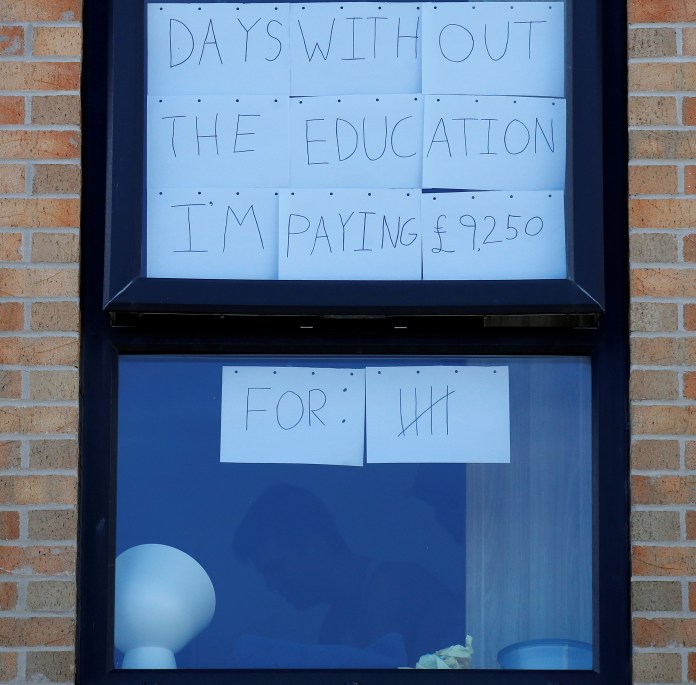 DAYS WITHOUT
THE EDUCATION
I'M PAYING £9,250
FOR: 𝍸